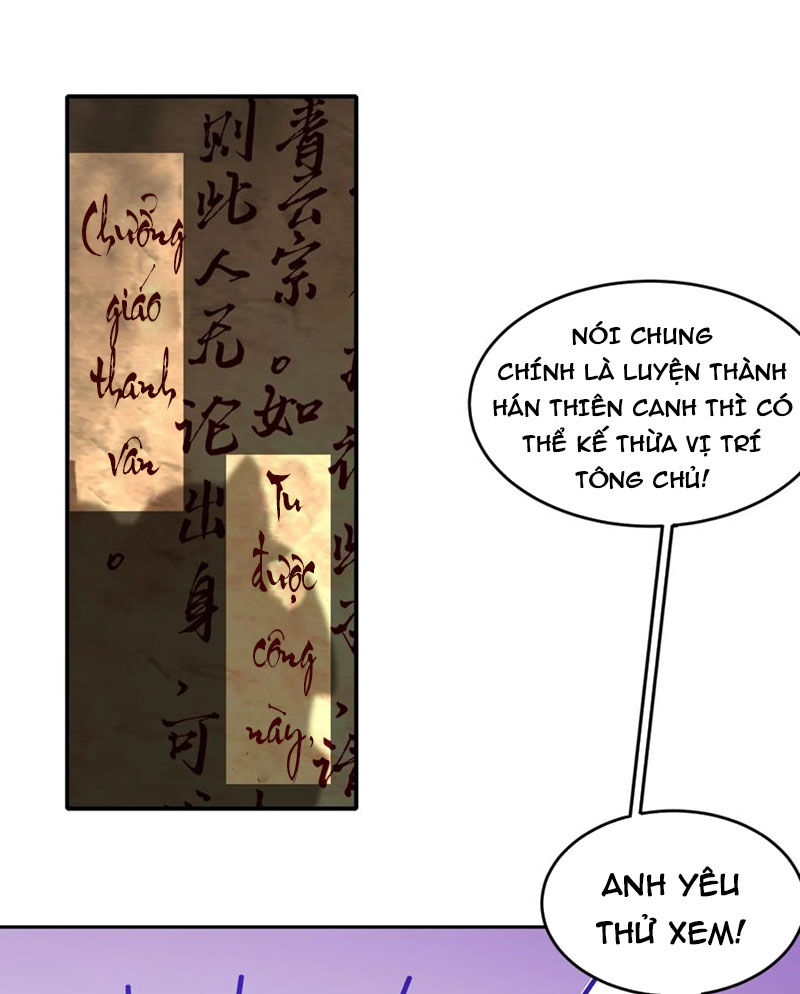 青云宗。如
则此人无论出身，可
Chưởng
giáo
thanh
vân
。
Tu
được
công
này,
请
NÓI CHUNG
CHÍNH LÀ LUYỆN THÀNH
HÁN THIÊN CANH THÌ CÓ
THỂ KẾ THỪA VỊ TRÍ
TÔNG CHỦ!
ANH YÊU
THỬ XEM!